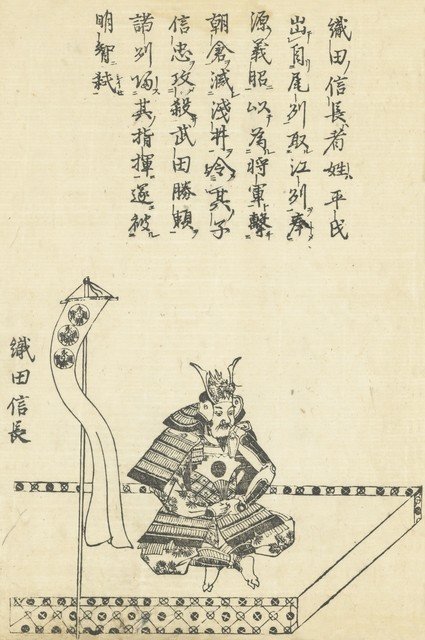 織田信長者姓平氏
出自尾列取江列奉
源義昭以為將軍擊
朝倉滅淺井令其子
信忠攻殺武田勝頼
諸列歸其指揮遂被
明智弑
織田信長